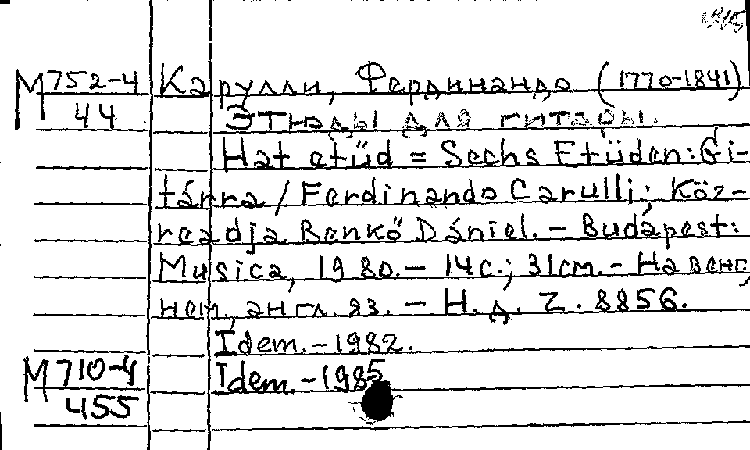 М 752-4 Карулли, Фердинандо (1770-1841)
44 Этюды для гитары.
Hat etüd = Sechs Etüden: Gi-
tárra / Ferdinando Carulli; Köz-
readja Benkő Dániel. – Budapest:
Musica, 1980. – 14 с.; 31 см. – На венг.,
нем., англ. яз. – Н. д. Z. 8856.
Idem. – 1982.
М 710-4 Idem. – 1985
455